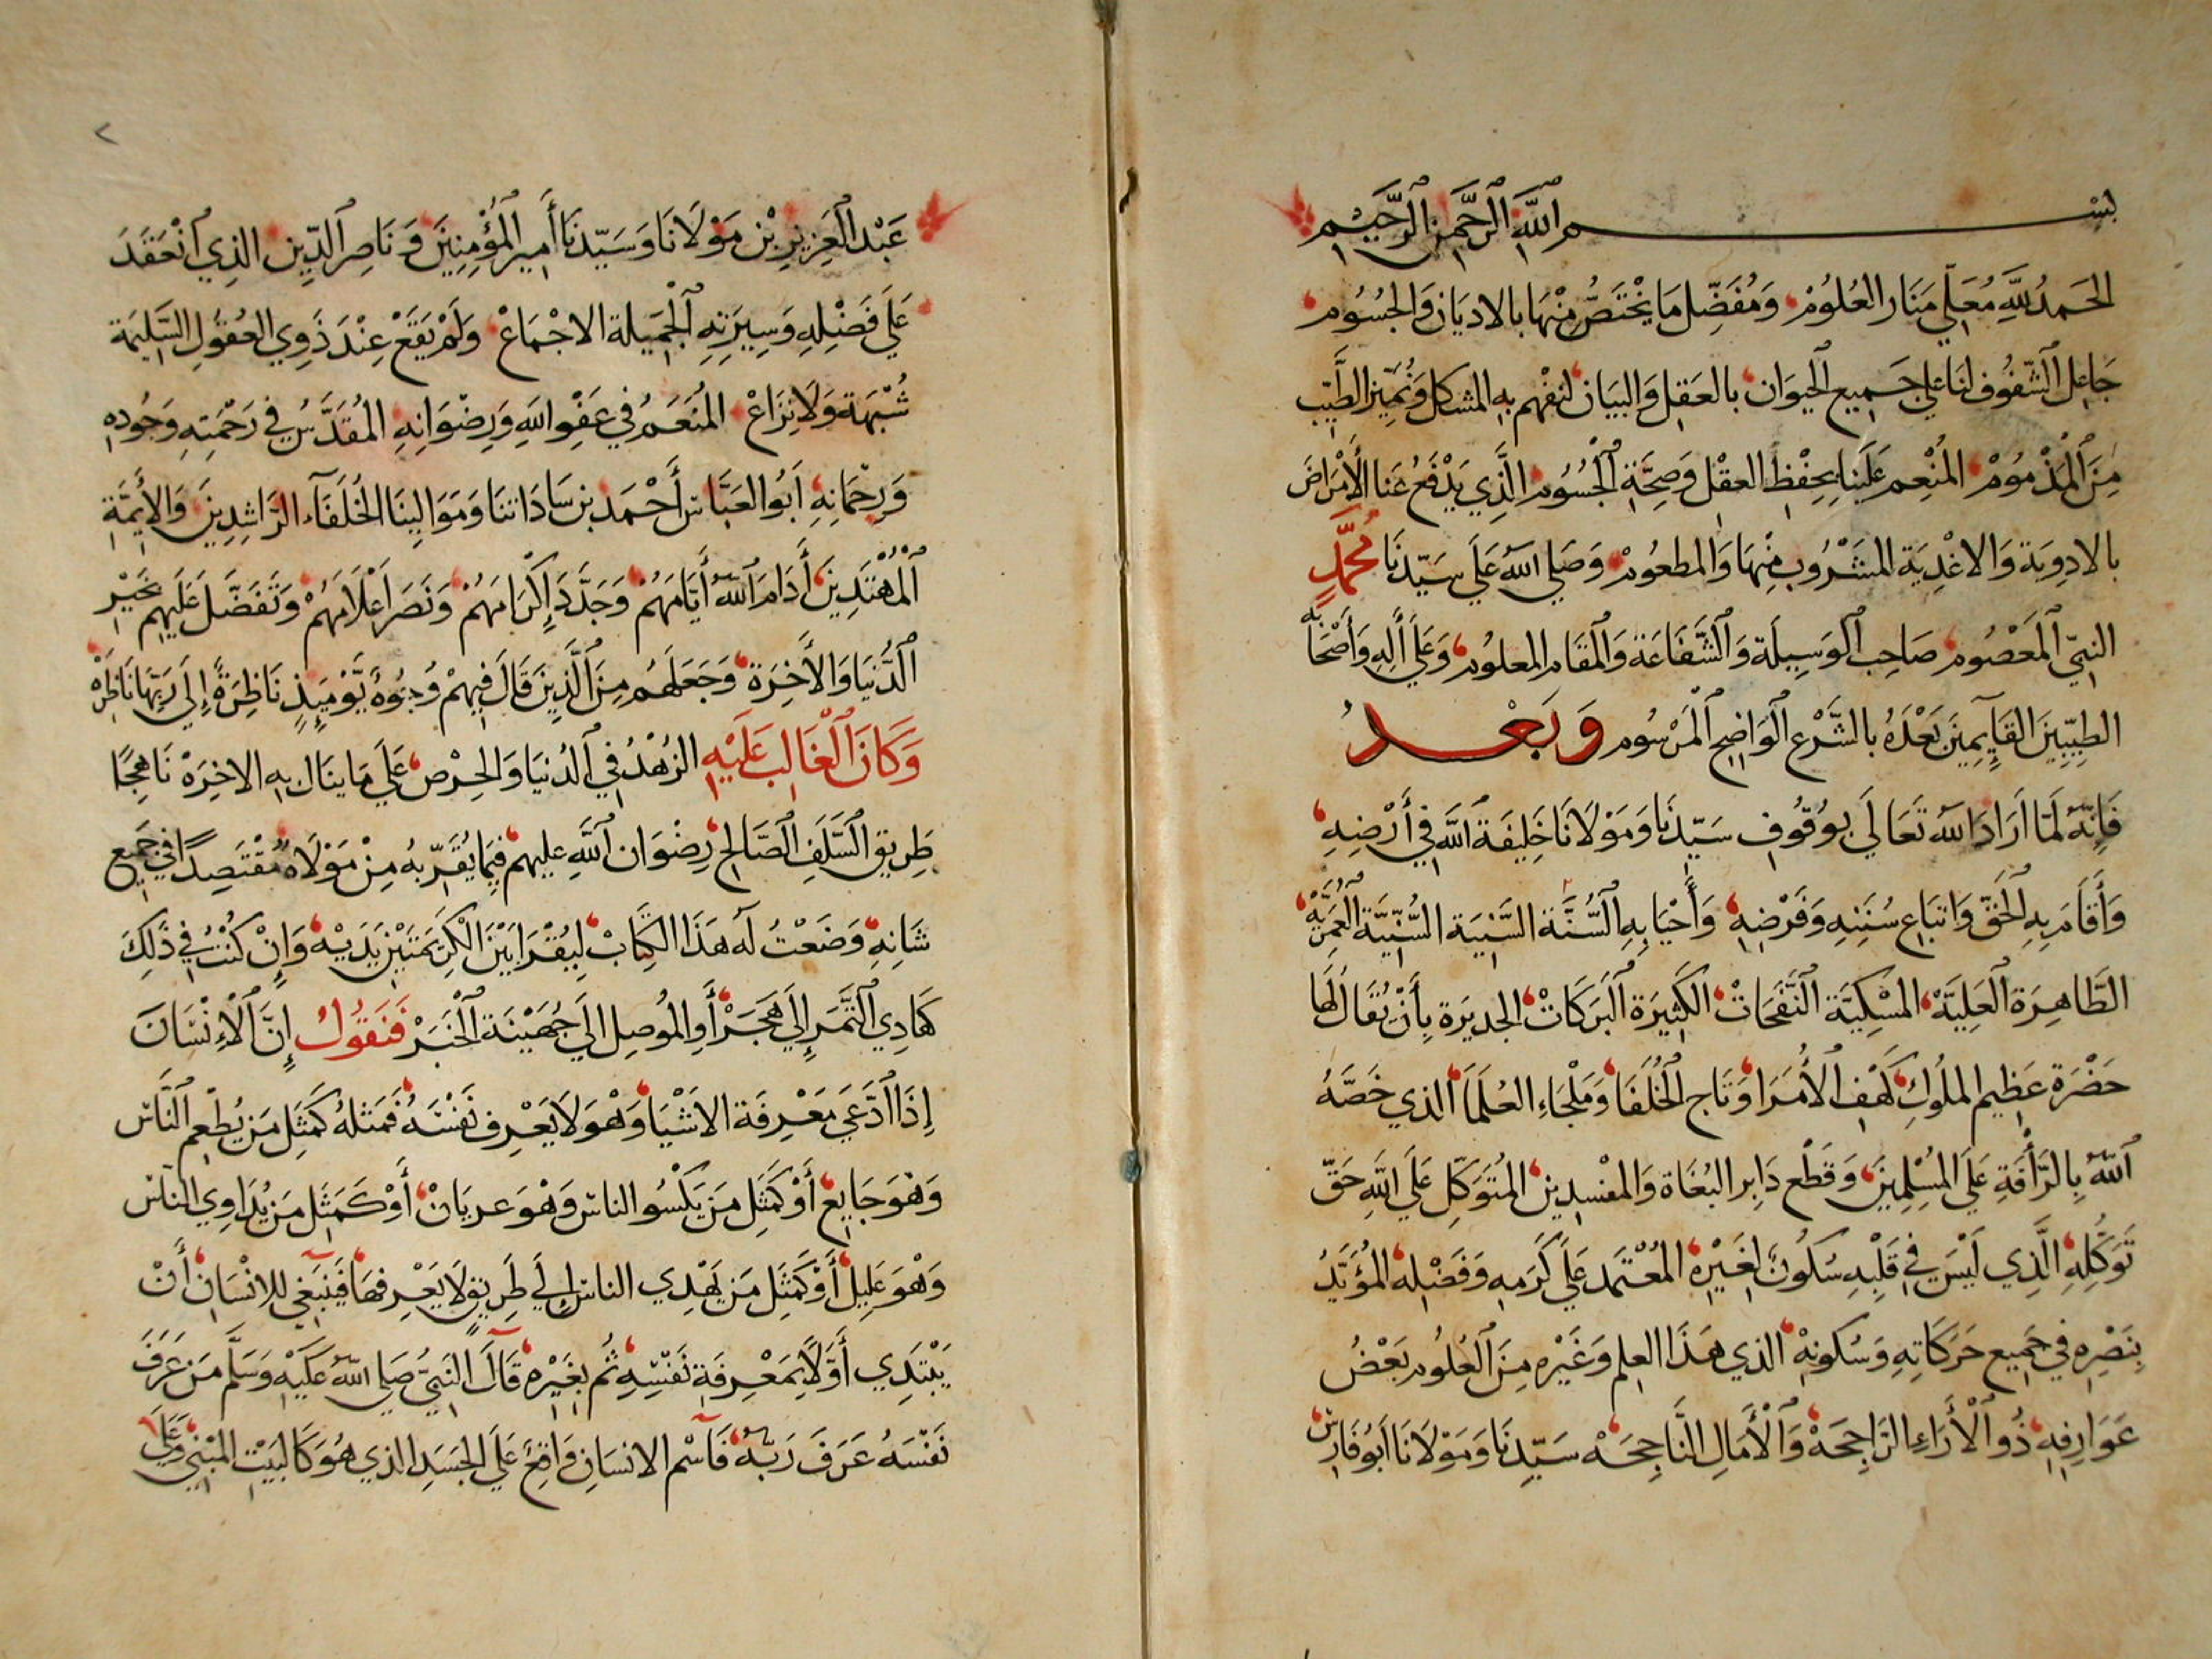 بسم الله الرحمن الرحيم
الحمد لله معلي منار العلوم ومفضل ما يختص منها بالاديان والجسوم
جاعل الشفوف لنا علي جميع الحيوان بالعقل والبيان لنفهم به المشكل ونميز الطيب
من المذموم المنعم علينا بحفظ العقل وصحة الجسوم الذي يدفع عنا الأمراض
بالادوية والاغذية المشروب منها والمطعوم وصلي الله علي سيدنا محمد
النبي المعصوم صاحب الوسيلة والشفاعة والمقام المعلوم وعلي أله وأصحابه
الطيبين القايمين بعده بالشرع الواضح المرسوم وبعد
فإنه لما اراد الله تعالي بوقوف سيدنا ومولانا خليفة الله في أرضه
وأقام به الحق واتباع سننه وفرضه وأحيا به السنة السنية السنية العمرية
الطاهرة العلية المسكية النفحات الكثيرة البركات الجديرة بأن يقال لها
حضرة عظيم الملوك كهف الأمرا وتاج الخلفا وملجاء العلما الذي خصه
الله بالرأفة علي المسلمين وقطع دابر البغاة والمفسدين المتوكل علي الله حق
توكله الذي ليس في قلبه سكون لغيره المعتمد علي كرمه وفضله المؤيد
بنصره في جميع حركاته وسكونه الذي هذا العلم وغيره من العلوم بعض
عوارفه ذو الأراء الراجحة والأمال الناجحه سيدنا ومولانا ابو فارس
عبد العزيز بن مولانا وسيدنا أمير المؤمنين وناصر الدين الذي انعقد
علي فضله وسيرته الجميلة الاجماع ولم يقع عند ذوي العقول السليمة
شبهة ولا نزاع المنعم في عفو الله ورضوانه المقدس في رحمته وجوده
ورحمانه ابو العباس أحمد بن ساداتنا وموالينا الخلفآء الراشدين والأيمة
المهتدين أدام الله أيامهم وجدد إكرامهم ونصر اعلامهم وتفضل عليهم بخير
الدنيا والأخرة وجعلهم من الذين قال فيهم وجوه يوميذ ناظرة إلي ربها ناظره
وكان الغالب عليه الزهد في الدنيا والحرص علي ما ينال به الاخره ناهجا
طريق السلف الصالح رضوان الله عليهم فيما يقربه من مولاه مقتصدا في جميع
شانه وضعت له هذا الكتاب ليقرا بين الكريمتين يديه وإن كنت في ذلك
كهادي التمر إلي هجر أو الموصل الي جهينة الخبر فنقول إن الإنسان
إذا ادعي معرفة الاشيا وهو لا يعرف نفسه فمثله كمثل من يطعم الناس
وهو جايع أو كمثل من يكسو الناس وهو عريان أو كمثل من يداوي الناس
وهو عليل أو كمثل من يهدي الناس إلي طريق لا يعرفها فينبغي للانسان أن
يبتدي أولا بمعرفة نفسه ثم بغيره قال النبي صلي الله عليه وسلم من عرف
نفسه عرف ربه فاسم الانسان واقع علي الجسد الذي هو كالبيت المبني وعلي